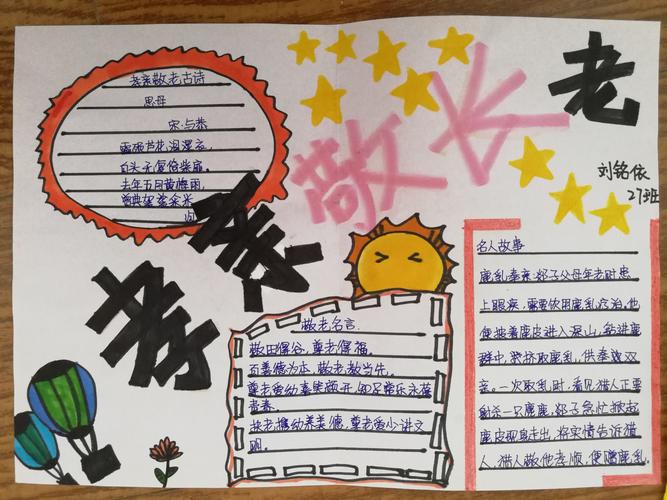 孝亲敬长老
刘铭依
27班
孝亲敬老古诗
思母
宋·与恭
霜殒芦花泪湿衣,
白头无复倚柴扉。
去年五月黄梅雨,
曾典袈裟籴米
归
敬老名言
敬田得谷,尊老得福。
百善德为本,敬老教当先。
尊老爱幼春常在,知足常乐永葆
青春。
扶老携幼养美德,尊老爱小讲文
明。
名人故事
鹿乳奉亲:郯子父母年老时患
上眼疾,需要饮用鹿乳疗治,他
便披着鹿皮进入深山,钻进鹿
群中,挤取鹿乳,供奉双
亲。一次取乳时,看见猎人正要
射杀一只麂鹿,郯子急忙掀起
鹿皮现身走出,将实情告诉猎
人,猎人敬他孝顺,便赠鹿乳。